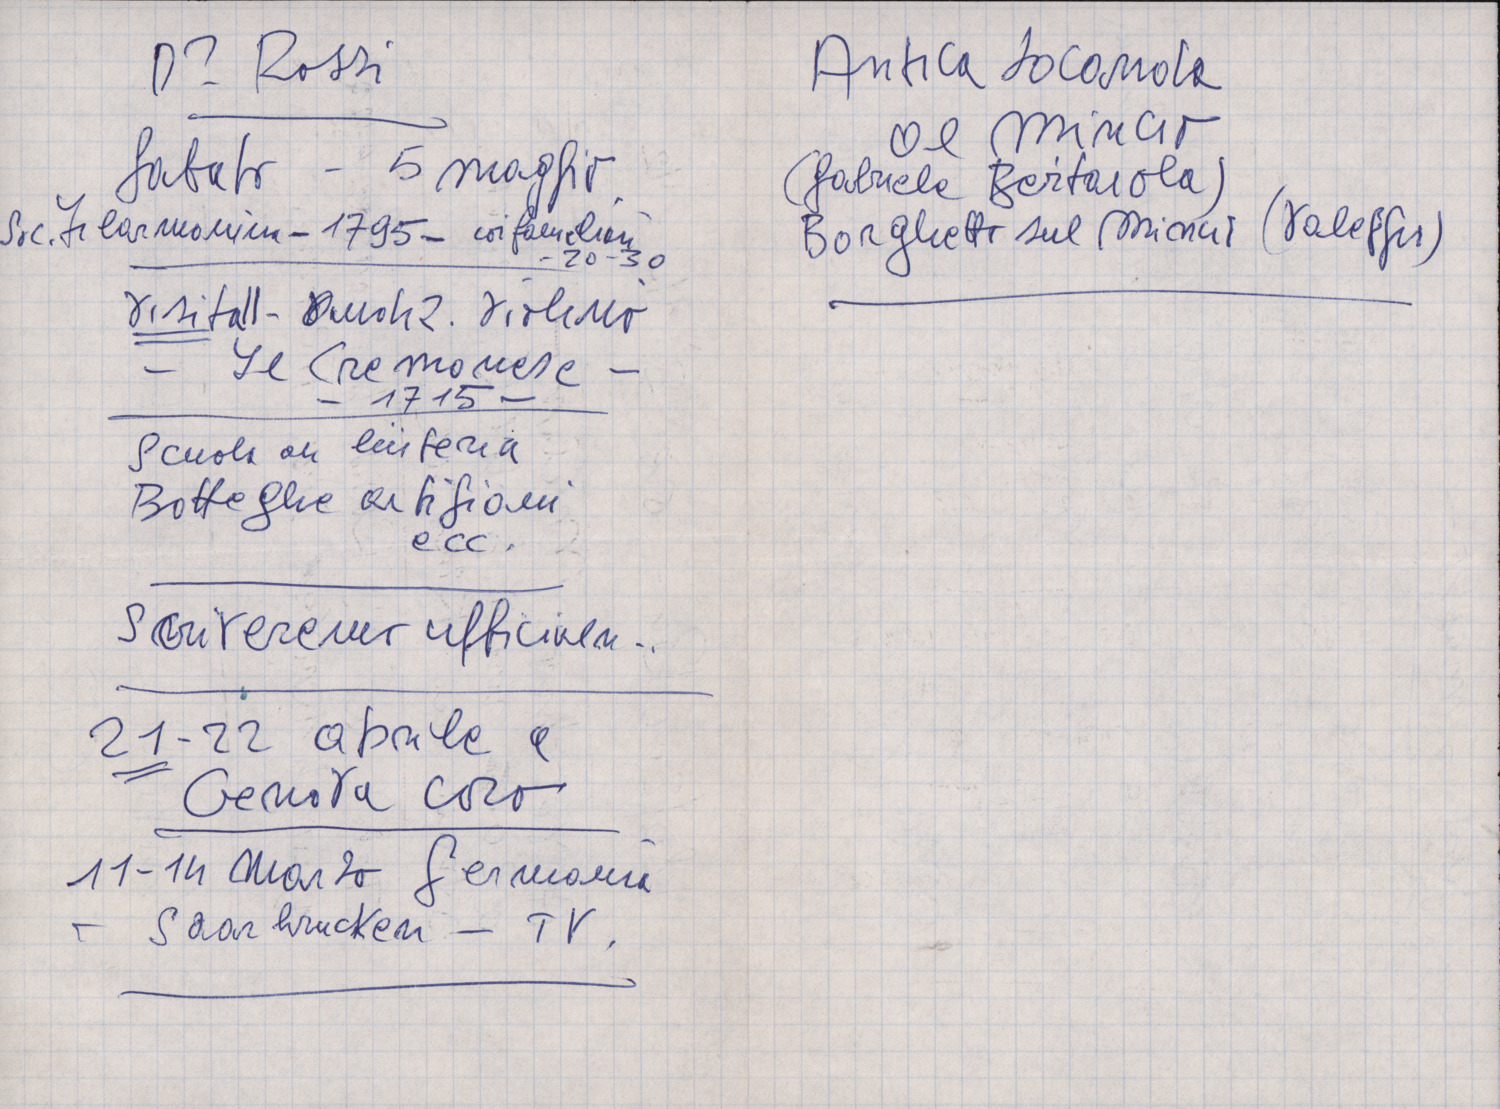 Dr Rossi
Sabato - 5 maggio
Soc. Filarmonica - 1795 -
- 20-30
visitall - violino
- Il Cremonese -
- 1715 -
Scuola di liuteria
Botteghe artigiani
ecc.
Scriveremo
21-22 aprile a
Genova coro
11-14 Marzo Germania
- Saarbrucken - TV.
Antica Locanda
al Mincio
(Gabriele Bertaiola)
Borghetto sul Mincio (Valeggio)